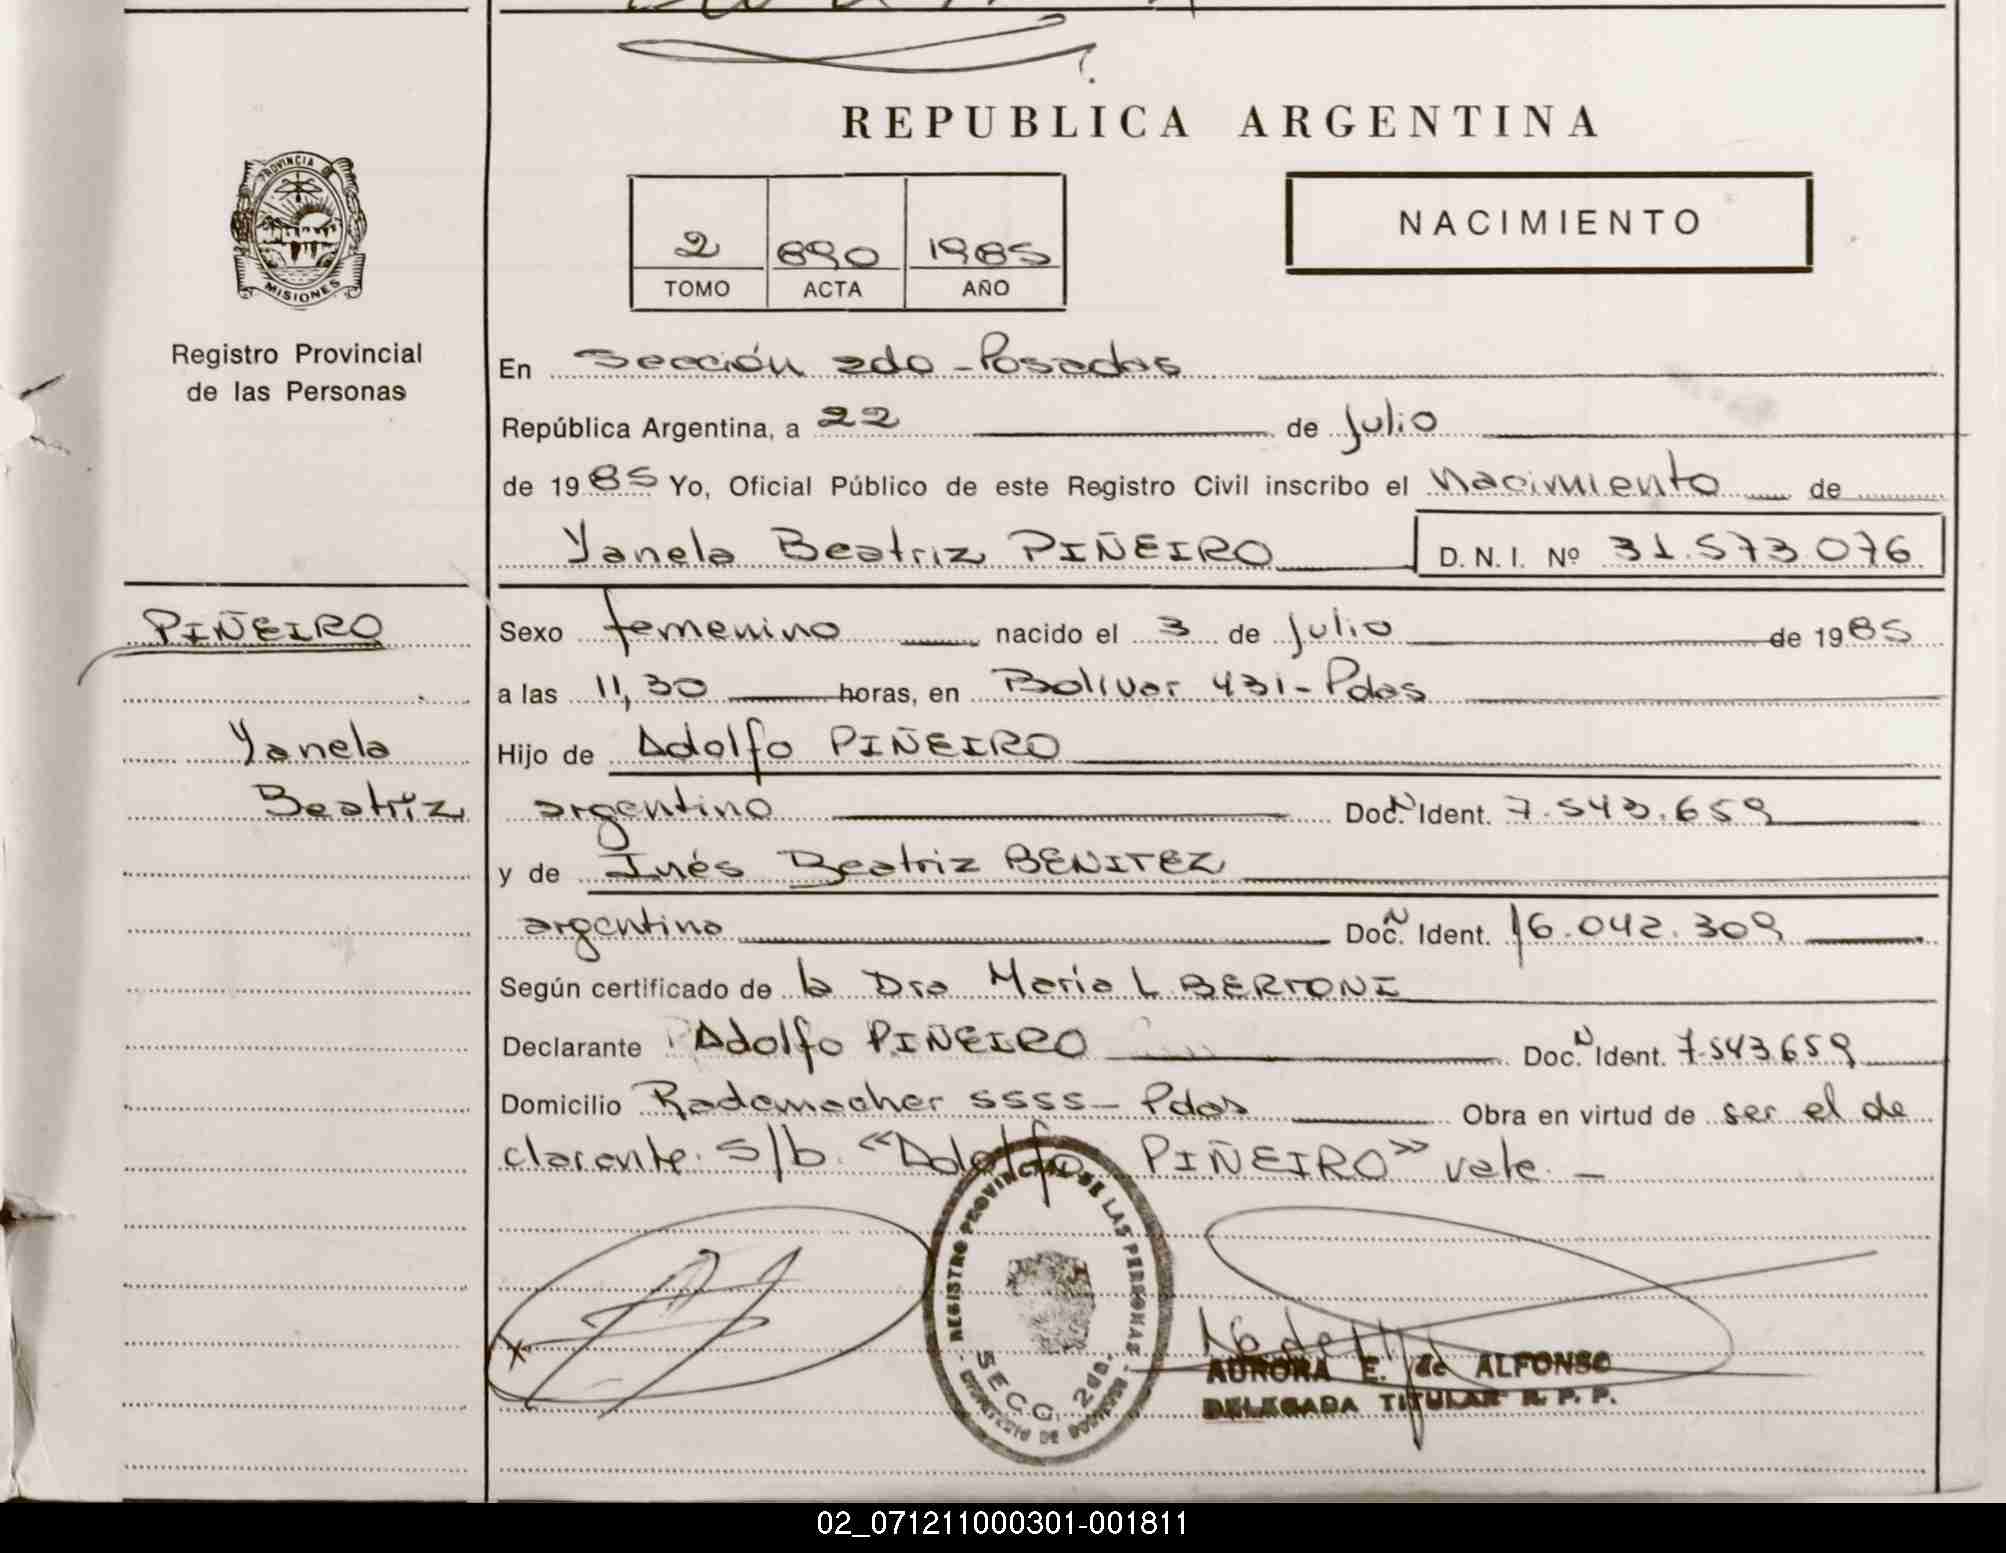 REPUBLICA ARGENTINA
PROVINCIA
MISIONES
2 890 1985
TOMO ACTA AÑO
NACIMIENTO
Registro Provincial
de las Personas
En Sección 2do - Posadas
República Argentina, a 22 de Julio
de 1985 Yo, Oficial Público de este Registro Civil inscribo el Nacimiento de
Yanela Beatriz PIÑEIRO D. N. I. Nº 31.573.076
PIÑEIRO
Yanela
Beatriz
Sexo femenino nacido el 3 de Julio de 1985
a las 11,30 horas, en Bolivar 431 - Pdas
Hijo de Adolfo PIÑEIRO
argentino Doc. N Ident. 7.543.659
y de Inés Beatriz BENITEZ
argentina Doc. N Ident. 16.042.309
Según certificado de la Dra Maria L BERTONI
Declarante Adolfo PIÑEIRO Doc. N Ident. 7.543.659
Domicilio Rademacher 5555 - Pdas Obra en virtud de ser el de
clarante. S/b. "Adolfo PIÑEIRO" vale. -
REGISTRO PROVINCIAL DE LAS PERSONAS
SECC. 2da.
AURORA E. de ALFONSO
DELEGADA TITULAR R. P. P.
02_071211000301-001811